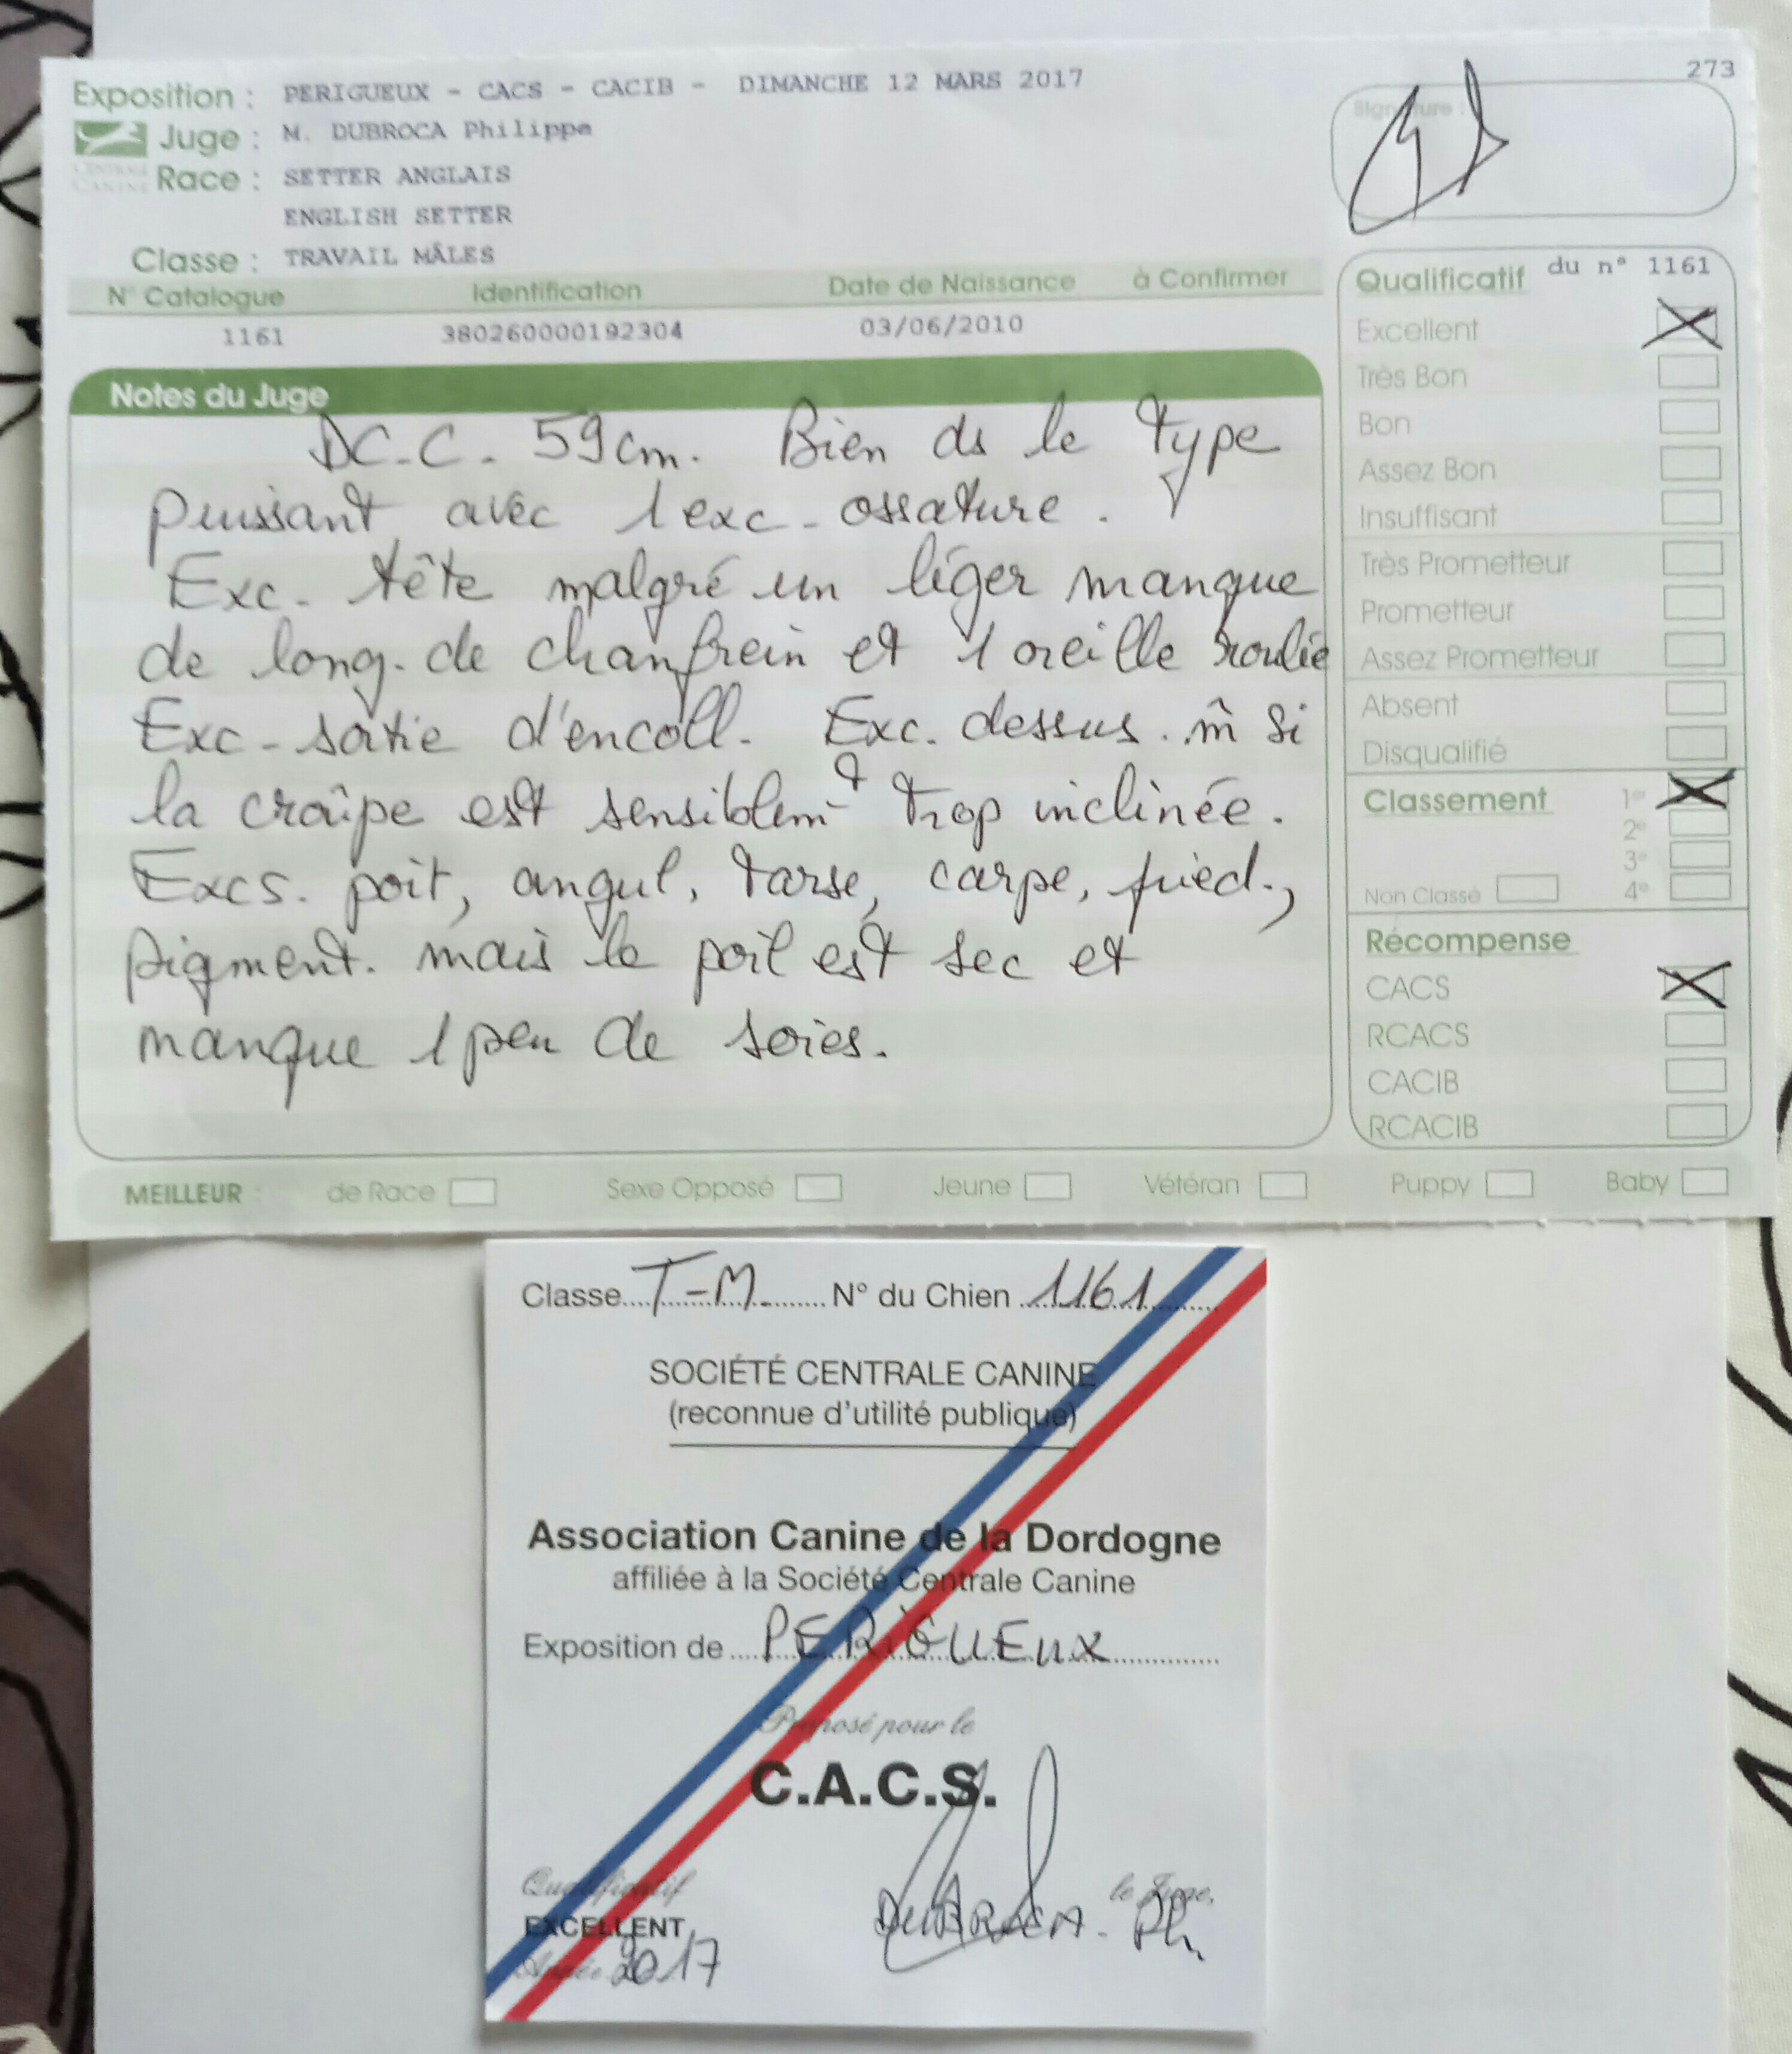 273
Exposition : PERIGUEUX - CACS - CACIB - DIMANCHE 12 MARS 2017
Signature :
Juge : M. DUBROCA Philippe
CENTRALE
CANINE
Race : SETTER ANGLAIS
ENGLISH SETTER
Classe : TRAVAIL MÂLES
N° Catalogue Identification Date de Naissance à Confirmer
1161 380260000192304 03/06/2010
Notes du Juge
DC.C. 59cm. Bien ds le type
puissant avec 1 exc. ossature.
Exc. tête malgré un léger manque
de long. de chanfrein et 1 oreille roulée
Exc. sortie d'encoll. Exc. dessus. m̂ si
la croupe est sensiblemt trop inclinée.
Excs. poit, angul, tarse, carpe, pied.,
pigment. mais le poil est sec et
manque 1 peu de soies.
Qualificatif du n° 1161
Excellent
Très Bon
Bon
Assez Bon
Insuffisant
Très Prometteur
Prometteur
Assez Prometteur
Absent
Disqualifié
Classement 1er
2e
3e
Non Classé 4e
Récompense
CACS
RCACS
CACIB
RCACIB
MEILLEUR : de Race Sexe Opposé Jeune Vétéran Puppy Baby
Classe T-M. N° du Chien 1161
SOCIÉTÉ CENTRALE CANINE
(reconnue d'utilité publique)
Association Canine de la Dordogne
affiliée à la Société Centrale Canine
Exposition de PERIGUEUX
Proposé pour le
C.A.C.S.
Qualificatif le Juge,
EXCELLENT DUBROCA. Ph.
Année 2017